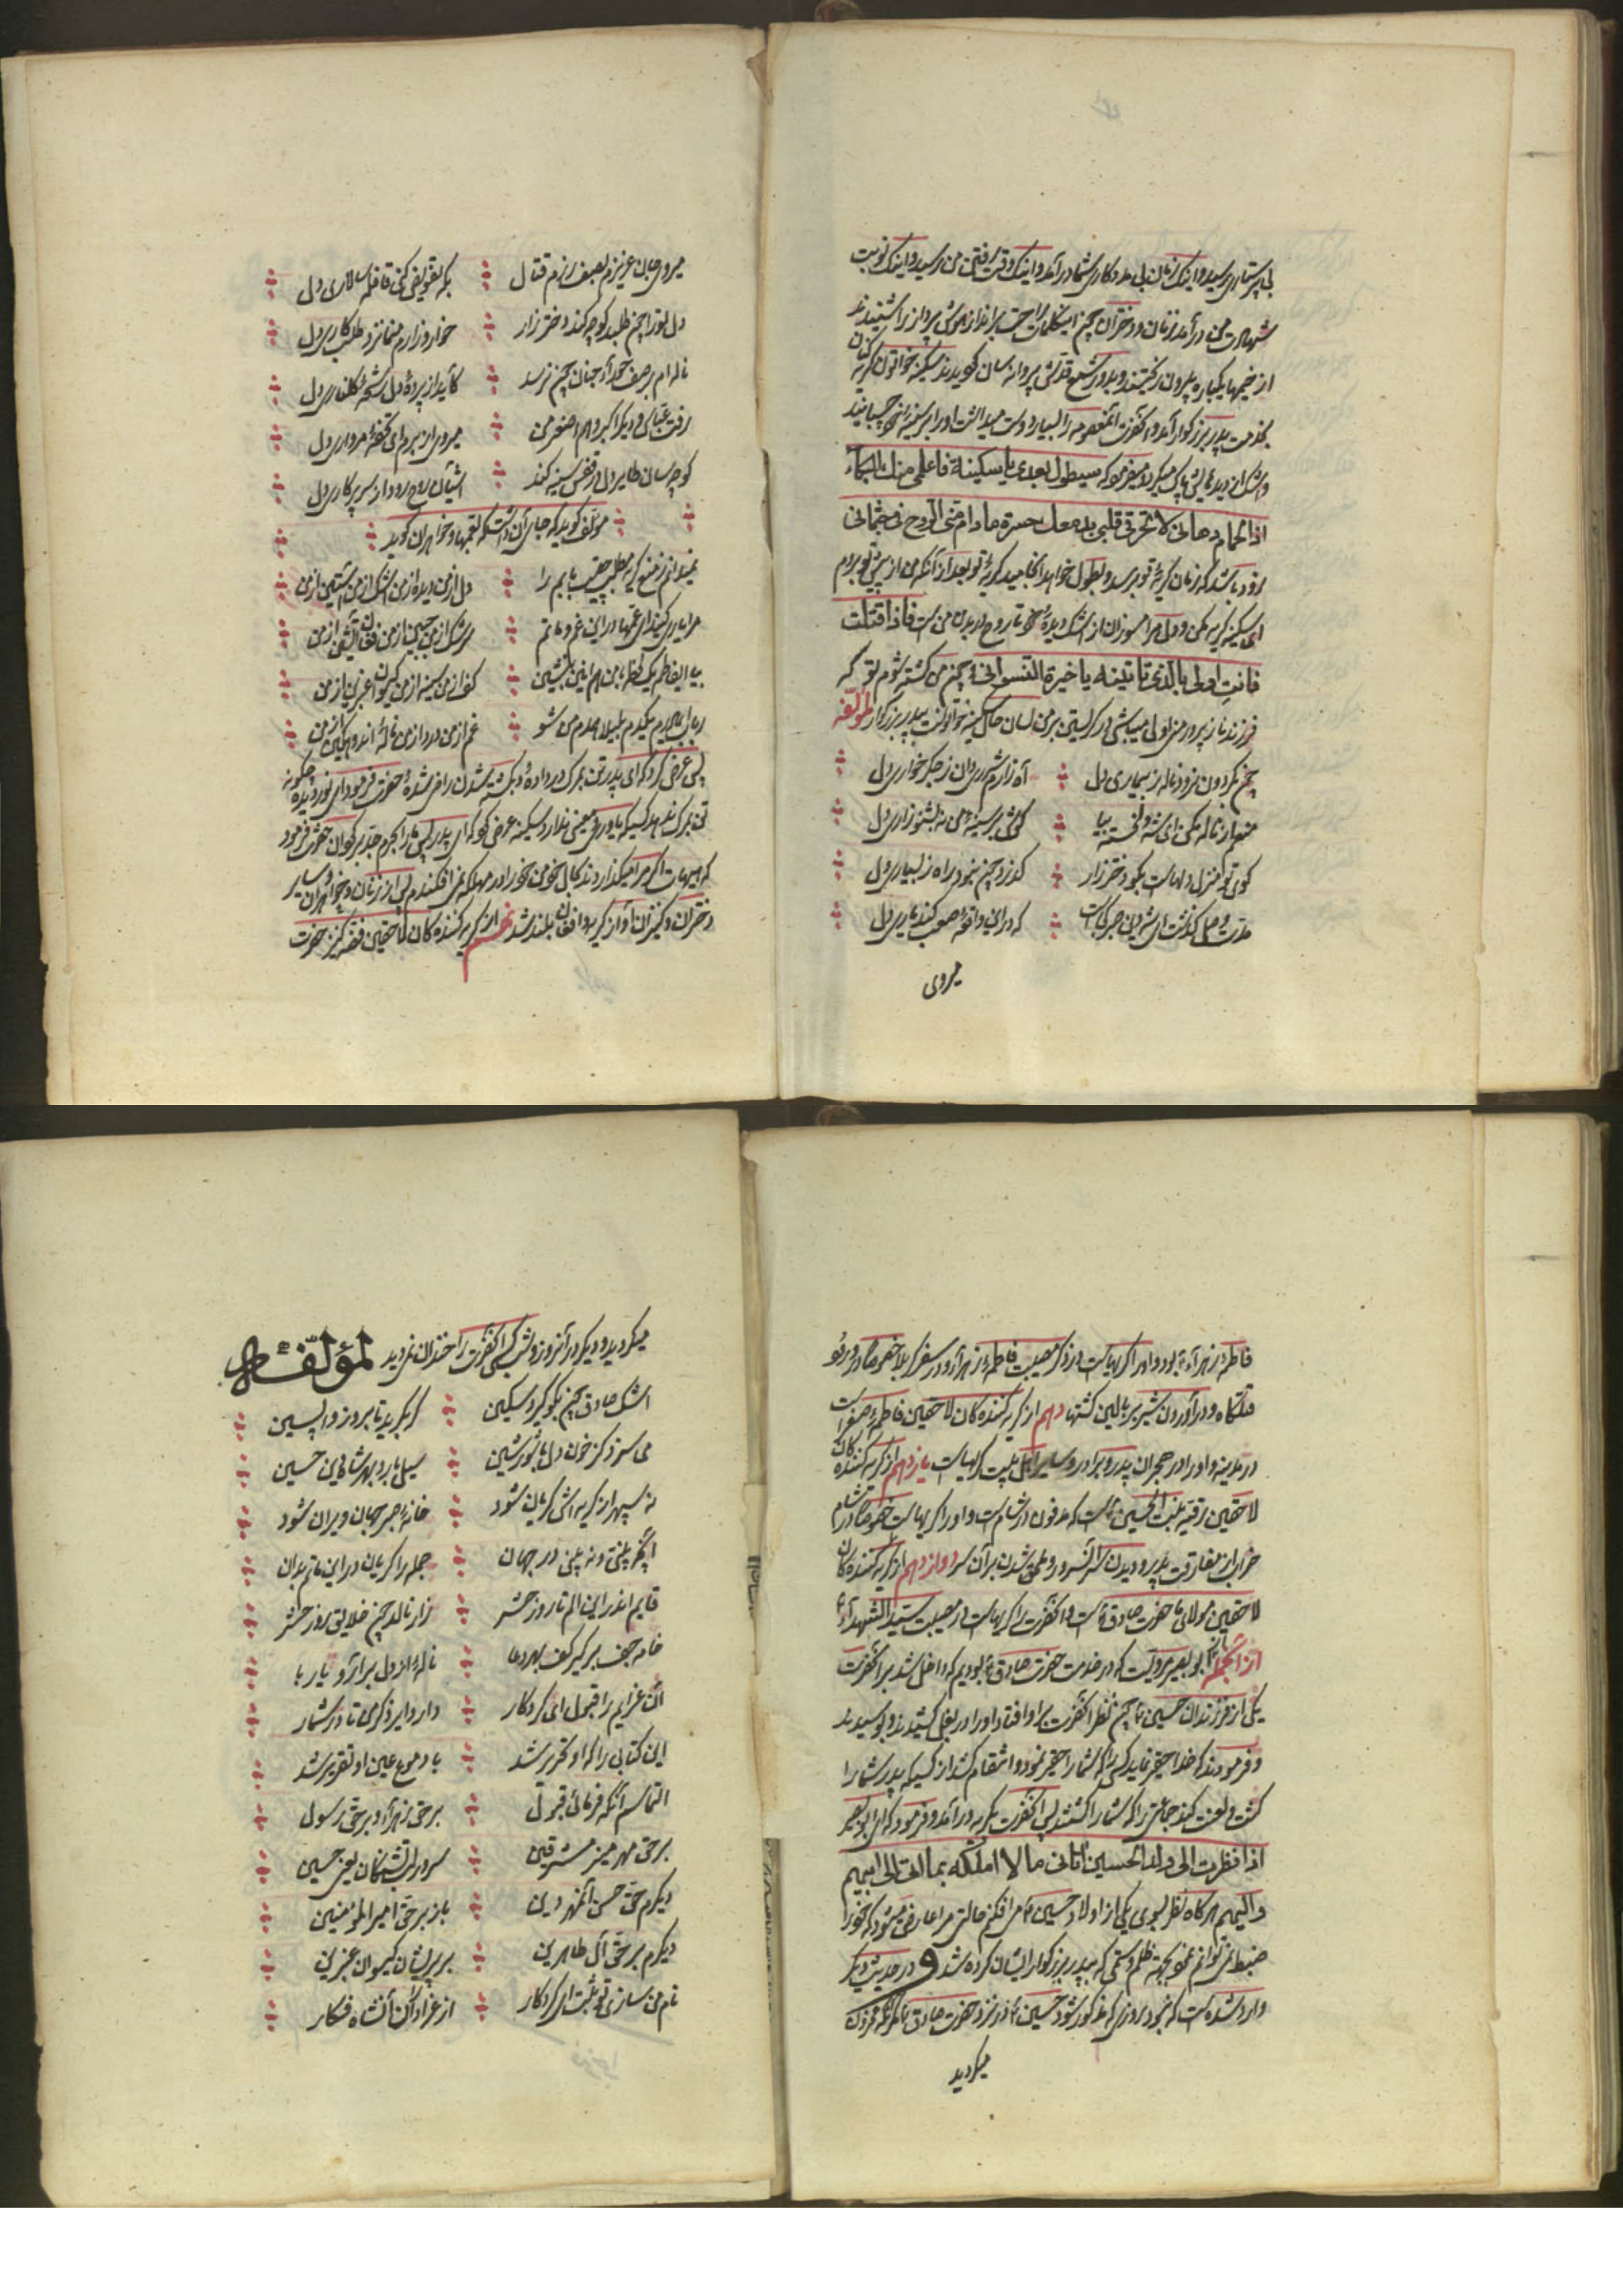 بی پرستاری رسید و اینک زمان بی مددکاری شما درآمد و اینک وقت رفتن من رسید و اینک نوبت
شهادت من درآمد زنان و دختران چون این کلمات را شنیدند
از خیمها یکباره بیرون ریختند و بدور شمع قدش پروانه سان گردیدند سکینه خواتون گریه کنان
بخدمت پدر بزرگوار آمد و آنحضرت آن معصومه را بسیار دوست میداشت او را بر سینه خود چسبانید
و اشک از دیدهایش پاک میکرد و میفرمود که سیطول بعدی یا سکینة فاعلمی منک البکاء
اذا الحمام دهانی لا تحرقی قلبی بدمعک حسرة مادام منی الروح فی جثمانی
زود باشد که زمان گریهٔ تو برسد و بطول خواهد انجامید گریهٔ تو بعد از آنکه من از پیش تو بروم
ای سکینه گریه مکن و دل مرا مسوزان از اشک دیدهٔ خود تا روح در بدن من است فاذا قتلت
فانت اولی بالذی تاتینه یا خیرة النسوانی چون من کشته شوم تو که
فرزند ناز پرور منی اولی میباشی در گریستن بر من لسان حال سکینه خواتون به پدر بزرگوار لمؤلفه
چون بگردون نرود ناله ز بیماری دل آه زارم شرری دان ز جگرخواری دل
منعم از ناله مکن ای شه دلخسته بیا گوش بر سینه من نه بشنو زاری دل
کوی تو منزل دلهاست بگو دختر زار گذرد چون نبود راه ز بسیاری دل
مدت وصل گذشت ای شه دین هجر کجاست که در این واقعهٔ صعب کند یاری دل
میروی
میروی جان عزیزم بصف رزم قتال بکه تفویض کنی قافله سالاری دل
دل تو را چون طلبد گو چه کند دختر زار خوار و زارم منما نزد طلبکاری دل
ناله ام بر صف حد آه چنان چون نرسد کاید از پردهٔ دل رشحه گلناری دل
رفت عباس و دیگر اکبر و هم اصغر من میروی از برم ای تحفهٔ مرواری دل
گو چه سان طایر دل در قفس سینه کند آشیان روح رود از سر پرکاری دل
مؤلف گوید که جای آن داشت که بعمها و خواهران گوید
نمیدانم ز منع گریه مطلب چیست بابم را دل از من دیده از من اشک از من آستین از من
مرا یاری کنید ای عمّها در این غم و ماتم سرشک از من جبین از من فغان آتشین از من
بیا ای فاطمه یک لحظه با من هم نشین بنشین کف از من سینه از من گیسوان عنبرین از من
رباب ای مادرم یکدم بلیلا همدم من شو غم از من درد از من نالهٔ اندوهگین از من
پس عرض کرد که ای پدر تن بمرگ در داده و بکشته شدن راضی شدهٔ حضرت فرمود ای نور دیده چگونه
تن بمرگ ندهد کسیکه یاور و معینی ندارد سکینه عرض کرد که ای پدر پس ما را بحرم جد بزرگوار برگردان حضرت فرمود
که هیهات اگر مرا میگذاردند بحال خود من خود را در مهلکه نمی افکندم پس از زنان و خواهران و سایر
دختران و کنیزان آواز گریه و افغان بلند شد نهم از گریه کننده کان لاحقین فضه کنیز حضرت
فاطمهٔ زهرآء بود و او را گریهاست در ذکر مصیبت فاطمهٔ زهرآ و در سفر کربلا خصوصا در ورود
قتلگاه و در آوردن شیر ببالین کشتها دهم از گریه کننده کان لاحقین فاطمه صغراست
در مدینه و او را در هجران پدر و برادر و سایر اهل بیت گریهاست یازدهم از گریه کننده کان
لاحقین رقیه بنت الحسین است که مدفون در شام است و او را گریهاست خصوصا در شام
خراب از مفارقت پدر و دیدن سر آنسرور و ملحق شدن بر آن سر دوازدهم از گریه کننده کان
لاحقین مولای ما حضرت صادق است و آنحضرت را گریهاست در مصیبت سید الشهدآء
از آنجمله ابو بصیر مرویست که در خدمت حضرت صادق بودیم که داخل شد بر آنحضرت
یکی از فرزندان حسین چون نظر آنحضرت بر او افتاد او را در بغل کشیدند و بوسیدند
و فرمودند که خدا حقیر نماید کسی را که شما را حقیر نمود و انتقام کشد از کسیکه پدر شما را
کشت و لعنت کند جماعتی را که شما را کشتند پس آنحضرت بگریه درآمد و فرمود که ای ابو بصیر
اذا نظرت الی ولد الحسین اتانی ما لا املکه بما اتی الی ابیهم
و الیهم هرگاه نظر بسوی یکی از اولاد حسین می افکنم حالتی مرا عارض میشود که خود را
ضبط نمی توانم نمود بجهة ظلم و ستمی که به پدر بزرگوار ایشان کرده شد و در حدیث دیگر
وارد شده است که نبود روزی که مذکور شود حسین در نزد حضرت صادق مگر آنکه محزون
میگردید
میگردید و دیگر در آنروز و شب کسی آنحضرت را خندان نمیدید لمؤلفه
اشک صادق چون نگو گیرد سکین گر بگرید تا بروز واپسین
می سزد کز خون دل با شور و شین سیل بارد بهر شاه دین حسین
نه سپهر از گریه اش گریان شود خانهٔ صبر جهان ویران شود
آنچه بینی و نه بینی در جهان جمله را گریان در این ماتم بدان
قایم اندر این الم تا روز حشر زار نالد چون خلایق روز حشر
خامه جف برگیر کف بهر دعا نالهٔ از دل برآر و یا ربا
این عزایم را قبول ای کردکار دار دایر ذکر من تا در شمار
این کتابی را که او تحریر شد با دموع عین او تقریر شد
التماسم آنکه فرمائی قبول بر حق زهرآء و بر حق رسول
بر حق مهر منیر مشرقین سرور لب تشنگان یعنی حسین
دیگرم حق حسن آنمهر دین باز بر حق امیر المؤمنین
دیگرم بر حق آل طاهرین بر پریشان گیسوان عنبرین
نام من سازی تو ثبت ای کردکار از عزاداران آنشاه فکار